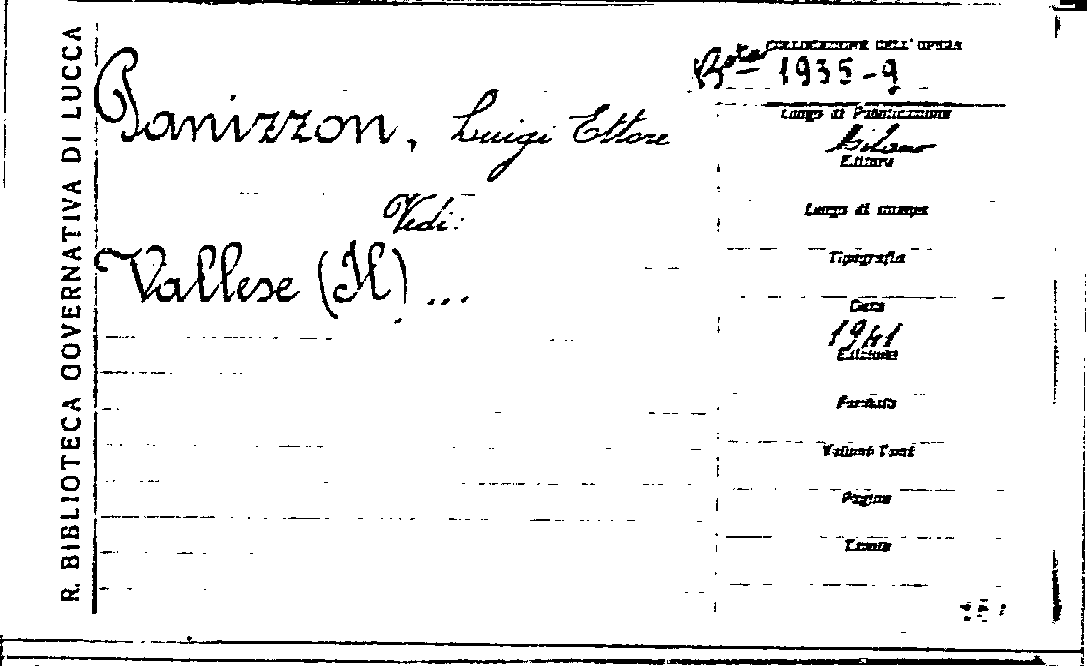 R. BIBLIOTECA GOVERNATIVA DI LUCCA
Panizzon, Luigi Ettore
Vedi:
Vallese (Il) ...
COLLOCAZIONE DELL' OPERA
Bta 1935-9
Luogo di Pubblicazione
Milano
Editore
Luogo di stampa
Tipografia
Data
1941
Edizione
Formato
Volumi Tomi
Pagine
Tavole